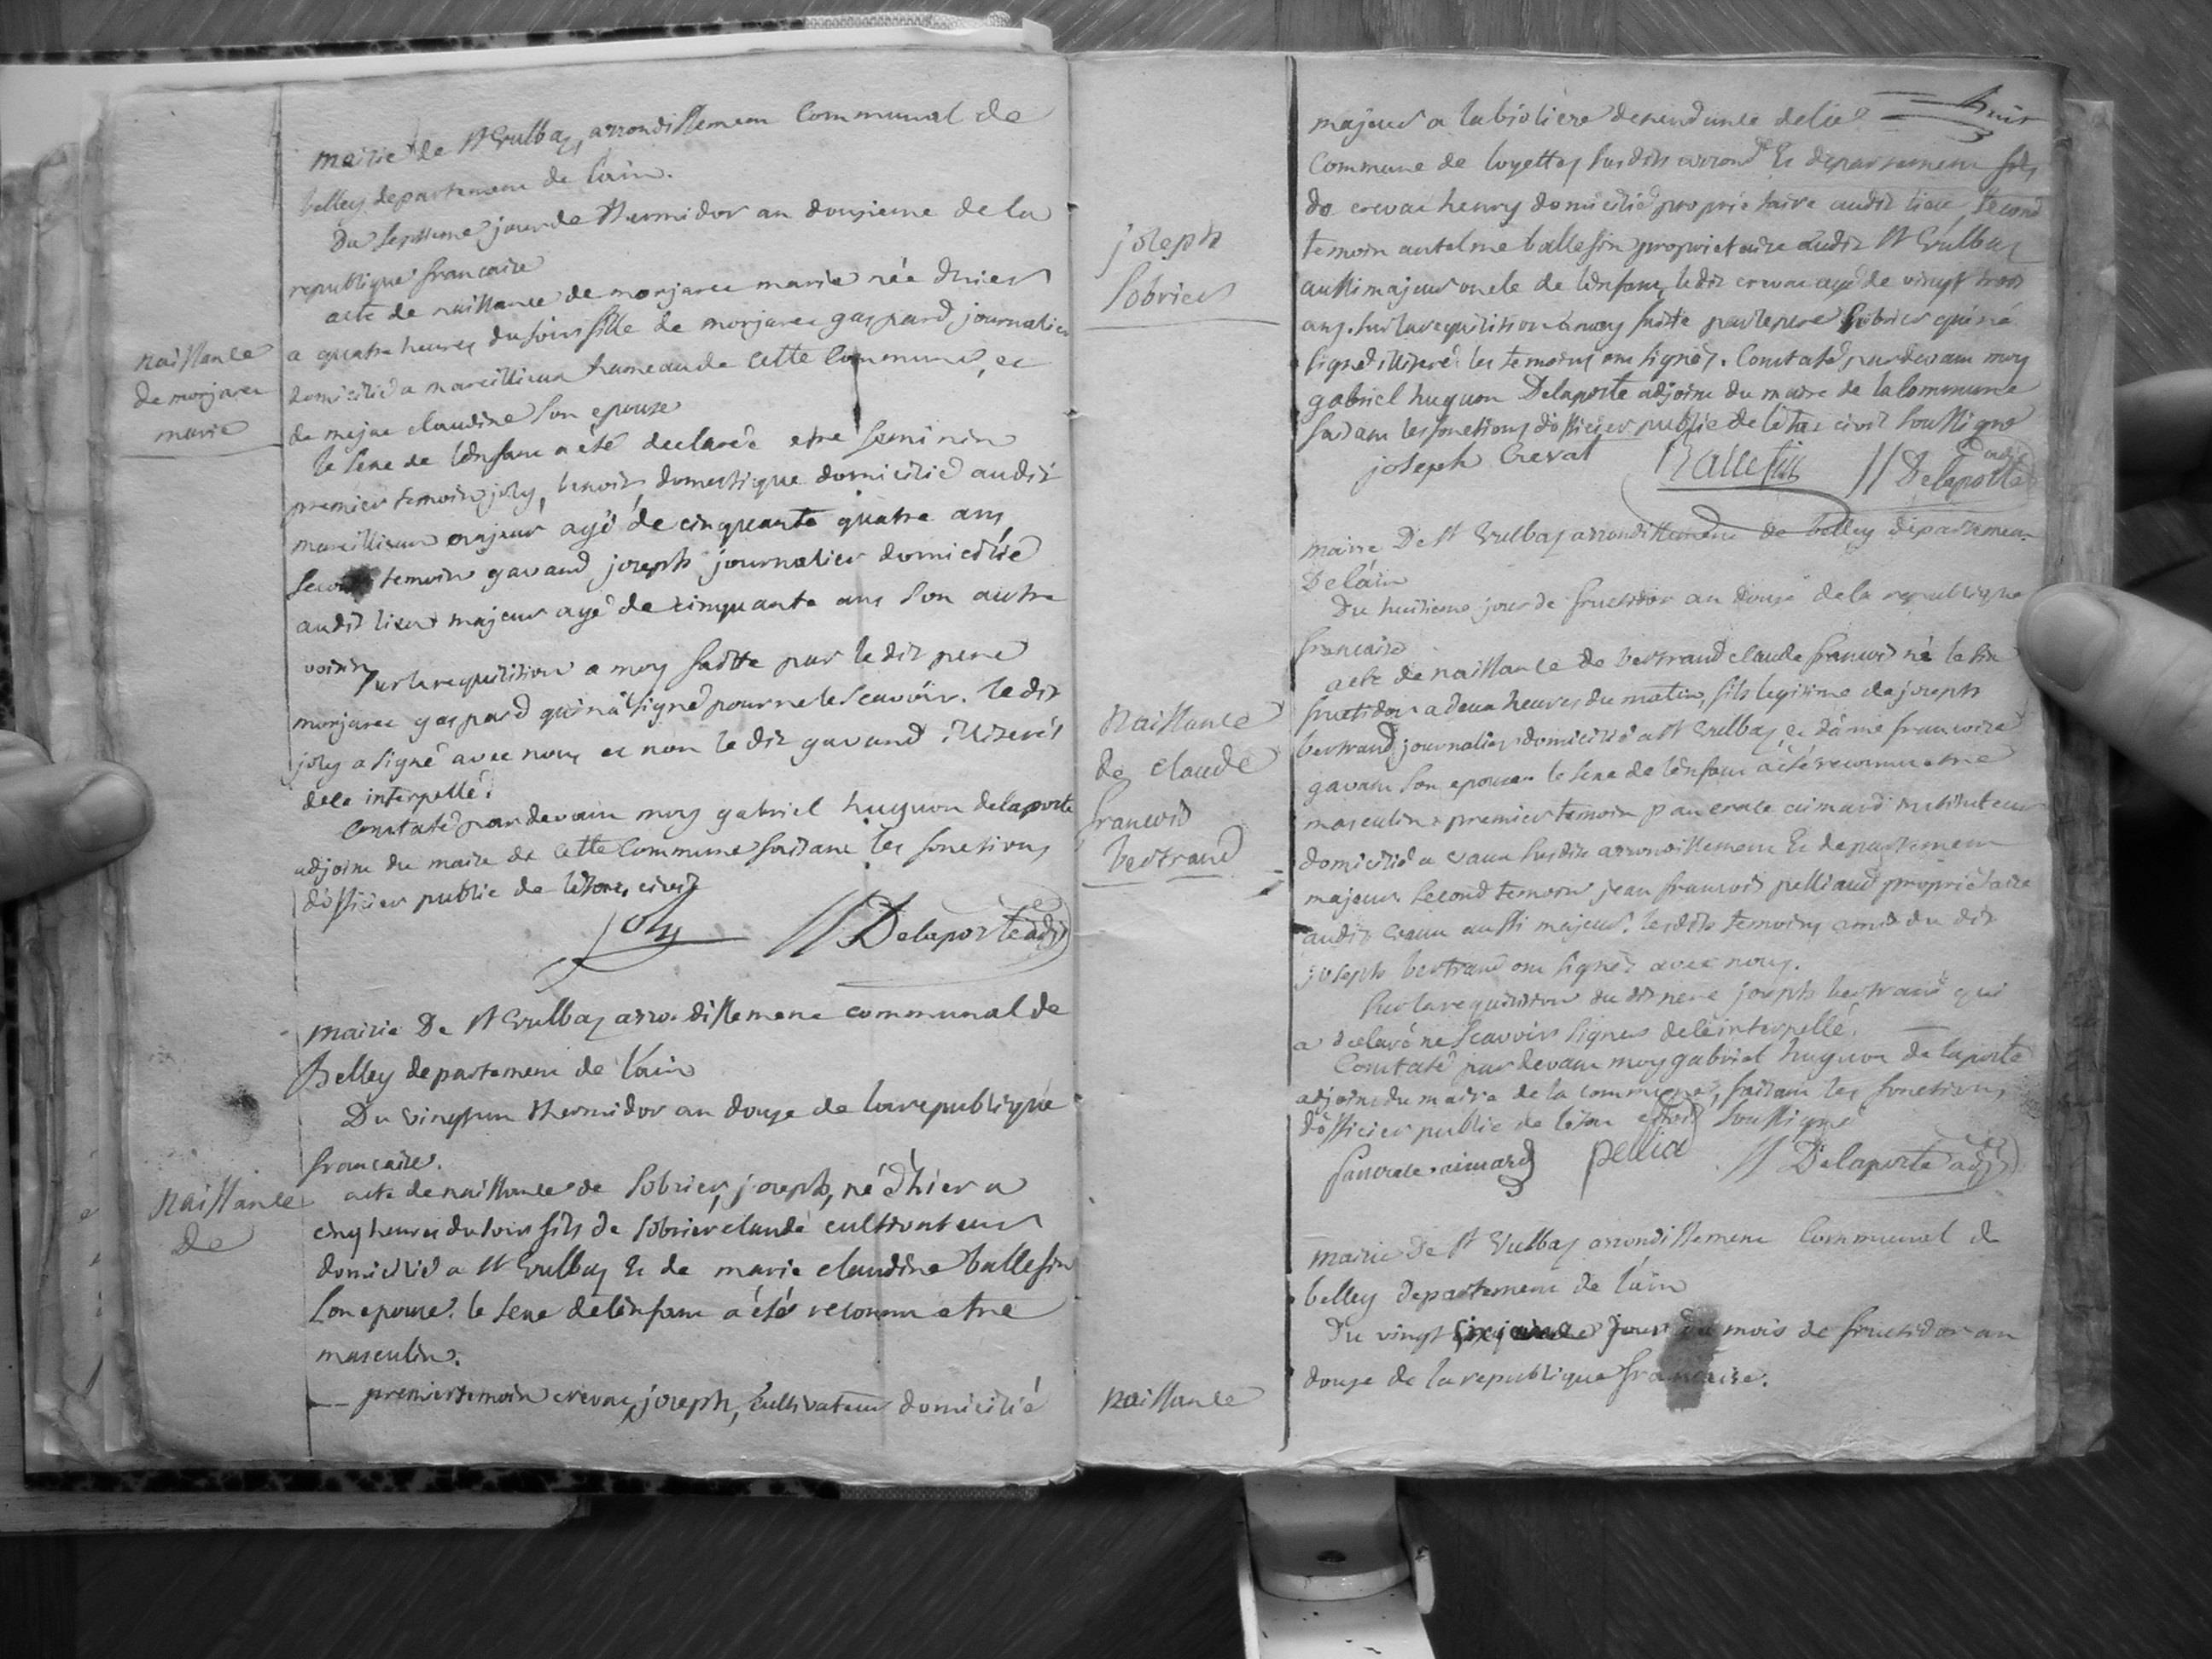 mairie de St Vulbaz, arrondissemen Communal de
belley departement de lain.
Du septieme jour de thermidor an douzieme de la
republique francaise
naissance
de monjarec
marie
acte de naissance de monjarec marie née d'hier
a quatre heures du soir fille de monjarec gaspard journalier
domicilié a marcillieux hameau de cette Commune, et
de mejac claudine son epouse
le sexe de lenfant a été declaré etre feminin
premier temoin joly, benoit, domestique domicilié audit
marcillieux majeur agé de cinquante quatre ans
second temoin gavand joseph journalier domicilié
audit lieu majeur agé de cinquante ans son autre
voisin
sur la requisition a moy faitte par le dit pere
monjarec gaspard qui n'a signé pour ne le scavoir. le dit
joly a signé avec nous et non le dit gavand illiterés
de ce interpellé.
Constaté par devant moy gabriel huguon delaporte
adjoint du maire de cette Commune faisant les fonctions
d'officier public de letat civil
joly Delaporte adj
mairie De St Vulbaz arrondissement communal de
Belley departement de lain
Du vingt un thermidor an douze de la republique
francaise.
naissance
de
acte de naissance de Sobrier, joseph, né d'hier a
cinq heures du soir fils de Sobrier claude cultivateur
domicilié a St Vulbaz & de marie claudine ballesin
son epouse. le sexe de lenfant a été reconnu etre
masculin.
premier temoin crevat, joseph, cultivateur domicilié
joseph
Sobrier
huit
majeur a la bioliere dependante de la
Commune de loyettes susdits arrond & departement fils
de crevat henry domicilié proprietaire audit lieu second
temoin antelme ballesin proprietaire audit St Vulbaz
aussi majeur oncle de lenfant, le dit crevat agé de vingt trois
ans. sur la requisition a moy faitte par le pere Sobrier qui n'a
signé illiteré les temoins ont signés. Constaté par devant moy
gabriel huguon Delaporte adjoint du maire de la Commune
faisant les fonctions d'officier public de letat civil soussigné
joseph Crevat Ballesin Delaporte adj
mairie De St Vulbaz arrondissement de belley departement
De lain
Du huitieme jour de fructidor an douze de la republique
francaise
naissance
de claude
francois
bertrand
acte de naissance de bertrand claude francois né le six
fructidor a deux heures du matin, fils legitime de joseph
bertrand journalier domicilié a St Vulbaz, & dame francoise
gavant son epouse. le sexe de lenfant a été reconnu etre
masculin. premier temoin pancrace aimard instituteur
domicilié a vaux susdits arrondissement & departement
majeur. second temoin jean francois pelliaud proprietaire
audit vaux aussi majeur. lesdits temoins amis du dit
joseph bertrand ont signés avec nous.
sur la requisition du dit pere joseph bertrand qui
a declaré ne scavoir signer de ce interpellé.
Constaté par devant moy gabriel huguon de laporte
adjoint du maire de la commune, faisant les fonctions
d'officier public de letat civil soussigné
pancrace aimard pellia Delaporte adj
mairie De St Vulbaz arrondissement Communal de
belley departement de lain
Du vingt jour du mois de fructidor an
douze de la republique francaise.
naissance